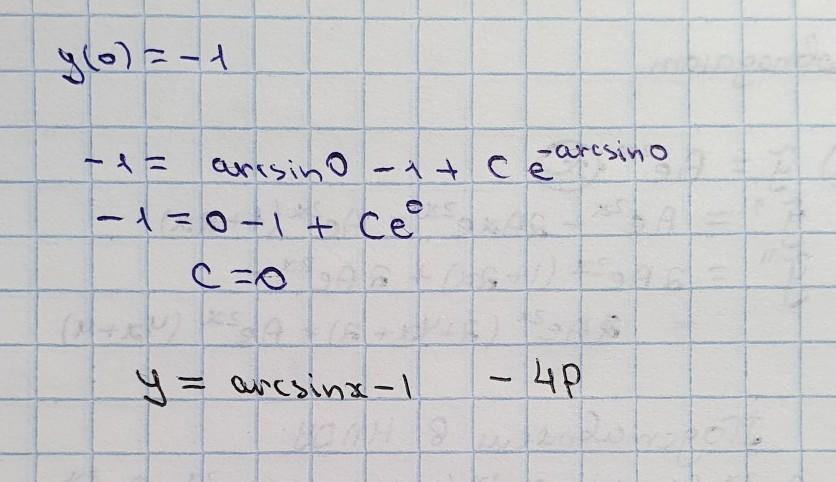 y(0) = -1
-1 = arcsin0 - 1 + C e^{-arcsin0}
-1 = 0 - 1 + Ce^0
C = 0
y = arcsinx - 1 - ЧР